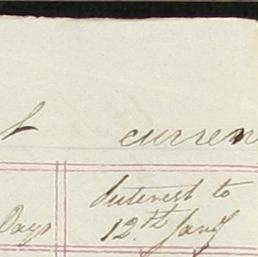 t curren
Interest to
Days 12th Jany